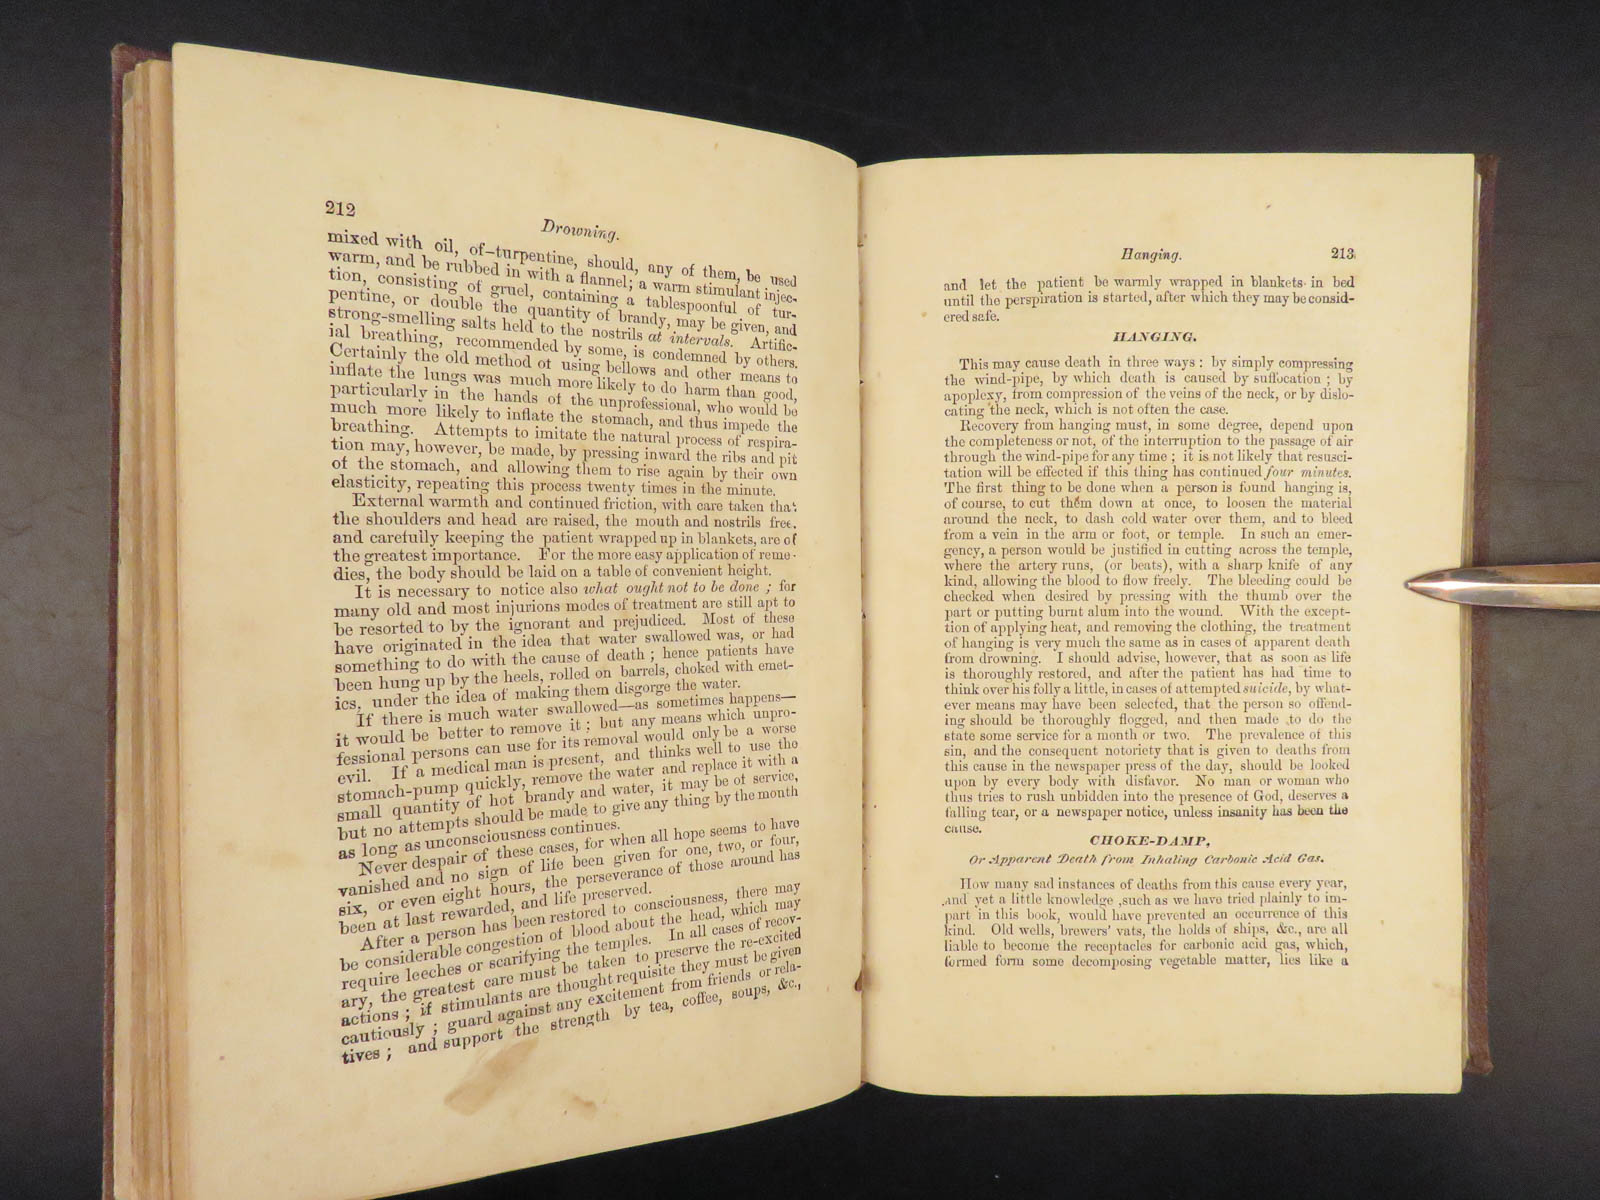 212
Drowning.
mixed with oil, of-turpentine, should, any of them, be used
warm, and be rubbed in with a flannel; a warm stimulant injec-
tion, consisting of gruel, containing a tablespoonful of tur-
pentine, or double the quantity of brandy, may be given, and
strong-smelling salts held to the nostrils at intervals. Artific-
ial breathing, recommended by some, is condemned by others.
Certainly the old method of using bellows and other means to
inflate the lungs was much more likely to do harm than good,
particularly in the hands of the unprofessional, who would be
much more likely to inflate the stomach, and thus impede the
breathing. Attempts to imitate the natural process of respira-
tion may, however, be made, by pressing inward the ribs and pit
of the stomach, and allowing them to rise again by their own
elasticity, repeating this process twenty times in the minute.
External warmth and continued friction, with care taken that
the shoulders and head are raised, the mouth and nostrils free,
and carefully keeping the patient wrapped up in blankets, are of
the greatest importance. For the more easy application of reme-
dies, the body should be laid on a table of convenient height.
It is necessary to notice also what ought not to be done ; for
many old and most injurions modes of treatment are still apt to
be resorted to by the ignorant and prejudiced. Most of these
have originated in the idea that water swallowed was, or had
something to do with the cause of death ; hence patients have
been hung up by the heels, rolled on barrels, choked with emet-
ics, under the idea of making them disgorge the water.
If there is much water swallowed—as sometimes happens—
it would be better to remove it ; but any means which unpro-
fessional persons can use for its removal would only be a worse
evil. If a medical man is present, and thinks well to use the
stomach-pump quickly, remove the water and replace it with a
small quantity of hot brandy and water, it may be of service,
but no attempts should be made to give any thing by the mouth
as long as unconsciousness continues.
Never despair of these cases, for when all hope seems to have
vanished and no sign of life been given for one, two, or four,
six, or even eight hours, the perseverance of those around has
been at last rewarded, and life preserved.
After a person has been restored to consciousness, there may
be considerable congestion of blood about the head, which may
require leeches or scarifying the temples. In all cases of recov-
ary, the greatest care must be taken to preserve the re-excited
actions ; if stimulants are thought requisite they must be given
cautiously ; guard against any excitement from friends or rela-
tives ; and support the strength by tea, coffee, soups, &c.,
Hanging. 213
and let the patient be warmly wrapped in blankets in bed
until the perspiration is started, after which they may be consid-
ered safe.
HANGING.
This may cause death in three ways : by simply compressing
the wind-pipe, by which death is caused by suffocation ; by
apoplexy, from compression of the veins of the neck, or by dislo-
cating the neck, which is not often the case.
Recovery from hanging must, in some degree, depend upon
the completeness or not, of the interruption to the passage of air
through the wind-pipe for any time ; it is not likely that resusci-
tation will be effected if this thing has continued four minutes.
The first thing to be done when a person is found hanging is,
of course, to cut them down at once, to loosen the material
around the neck, to dash cold water over them, and to bleed
from a vein in the arm or foot, or temple. In such an emer-
gency, a person would be justified in cutting across the temple,
where the artery runs, (or beats), with a sharp knife of any
kind, allowing the blood to flow freely. The bleeding could be
checked when desired by pressing with the thumb over the
part or putting burnt alum into the wound. With the except-
tion of applying heat, and removing the clothing, the treatment
of hanging is very much the same as in cases of apparent death
from drowning. I should advise, however, that as soon as life
is thoroughly restored, and after the patient has had time to
think over his folly a little, in cases of attempted suicide, by what-
ever means may have been selected, that the person so offend-
ing should be thoroughly flogged, and then made to do the
state some service for a month or two. The prevalence of this
sin, and the consequent notoriety that is given to deaths from
this cause in the newspaper press of the day, should be looked
upon by every body with disfavor. No man or woman who
thus tries to rush unbidden into the presence of God, deserves a
falling tear, or a newspaper notice, unless insanity has been the
cause.
CHOKE-DAMP,
Or Apparent Death from Inhaling Carbonic Acid Gas.
How many sad instances of deaths from this cause every year,
and yet a little knowledge ,such as we have tried plainly to im-
part in this book, would have prevented an occurrence of this
kind. Old wells, brewers' vats, the holds of ships, &c., are all
liable to become the receptacles for carbonic acid gas, which,
formed form some decomposing vegetable matter, lies like a